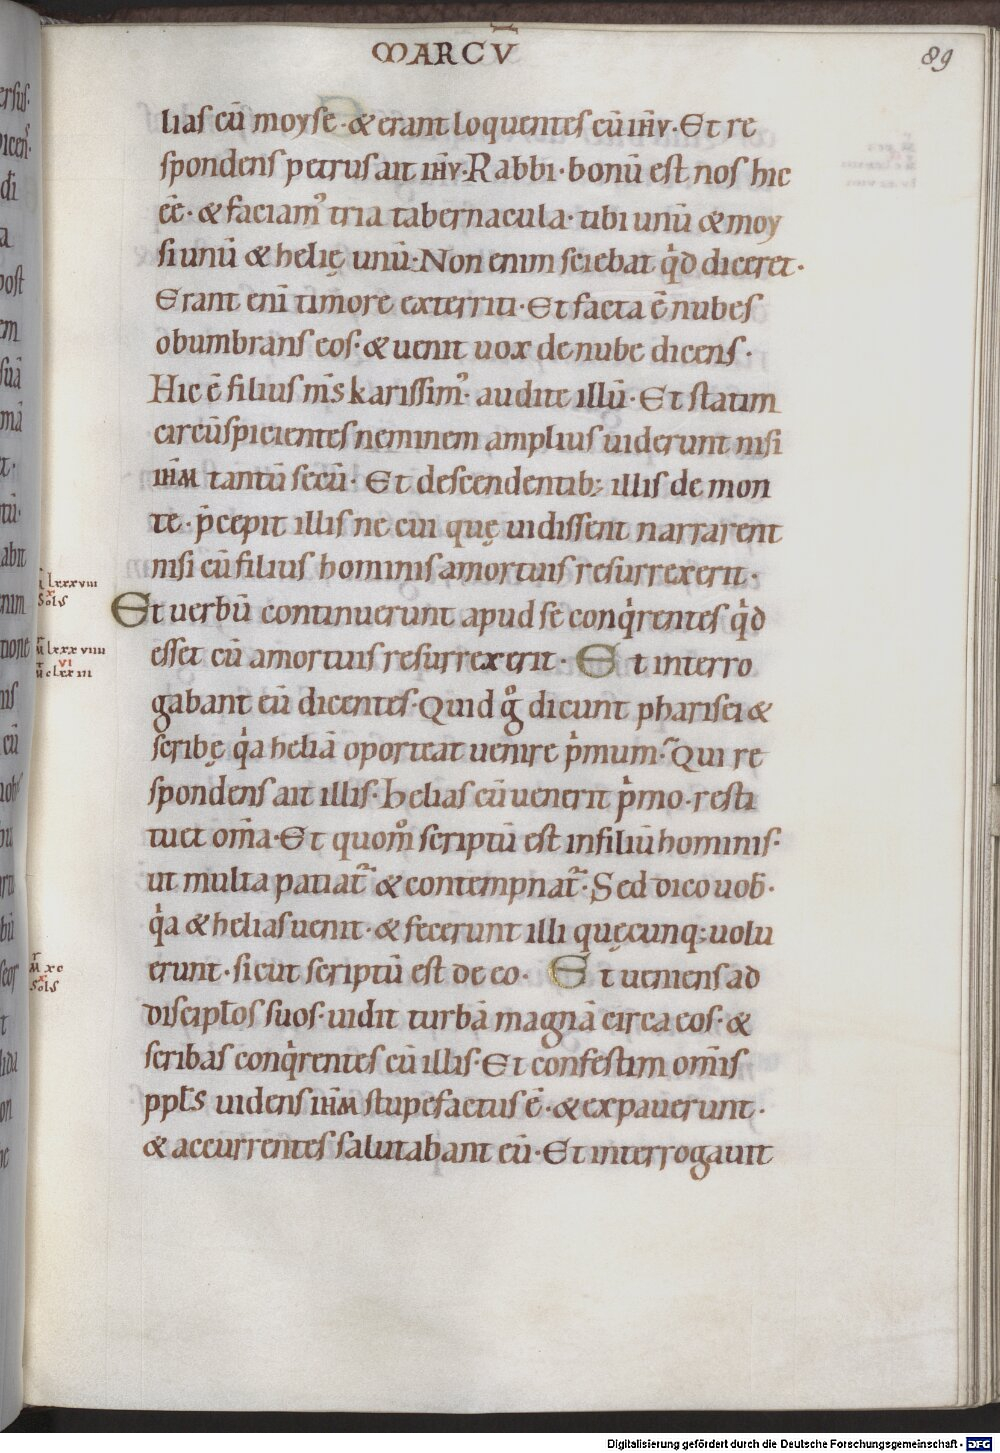 MARCV̄
89
lias cū moyse · & erant loquentes cū ihv̄ · Et re
spondens petrus ait ihv̄ · Rabbi · bonū est nos hic
eē · & faciamꝰ tria tabernacula · tibi unū & moy
si unū & helię unū · Non enim sciebat qͥd diceret ·
Erant enī timore exterriti · Et facta ē nubes
obumbrans eos · & uenit uox de nube dicens ·
Hic ē filius ms̄ karissimꝰ · audite illū · Et statim
circūspicientes neminem amplius uiderunt nisi
ihm̄ tantū secū · Et descendentibꝫ illis de mon
te · p̄cepit illis ne cui quę uidissent narrarent
nisi cū filius hominis amortuis resurrexerit ·
Et uerbū continuerunt apud se conqͥrentes qͥd
esset cū amortuis resurrexerit · Et interro
gabant eū dicentes · Quid gͦ dicunt pharisei &
scribę qͥa heliā oporteat uenire pͥmum · Qui re
spondens ait illis · Helias cū uenerit pͥmo · resti
tuet om̄a · Et quomͦ scriptū est infiliū hominis ·
ut multa patiat᷑ & contempnat᷑ · Sed dico uob̄ ·
qͥa & helias uenit · & fecerunt illi quęcunqꝫ uolu
erunt · sicut scriptū est de eo · Et ueniens ad
discipłos suos · uidit turbā magnā circa eos · &
scribas conqͥrentes cū illis · Et confestim om̄is
ppłs uidens ihm̄ stupefactus ē · & expauerunt ·
& accurrentes salutabant eū · Et interrogauit
lxxxviii
Sols
M lxxxviiii
VI
M clxxiii
M xc
X
Sols
Digitalisierung gefördert durch die Deutsche Forschungsgemeinschaft - DFG